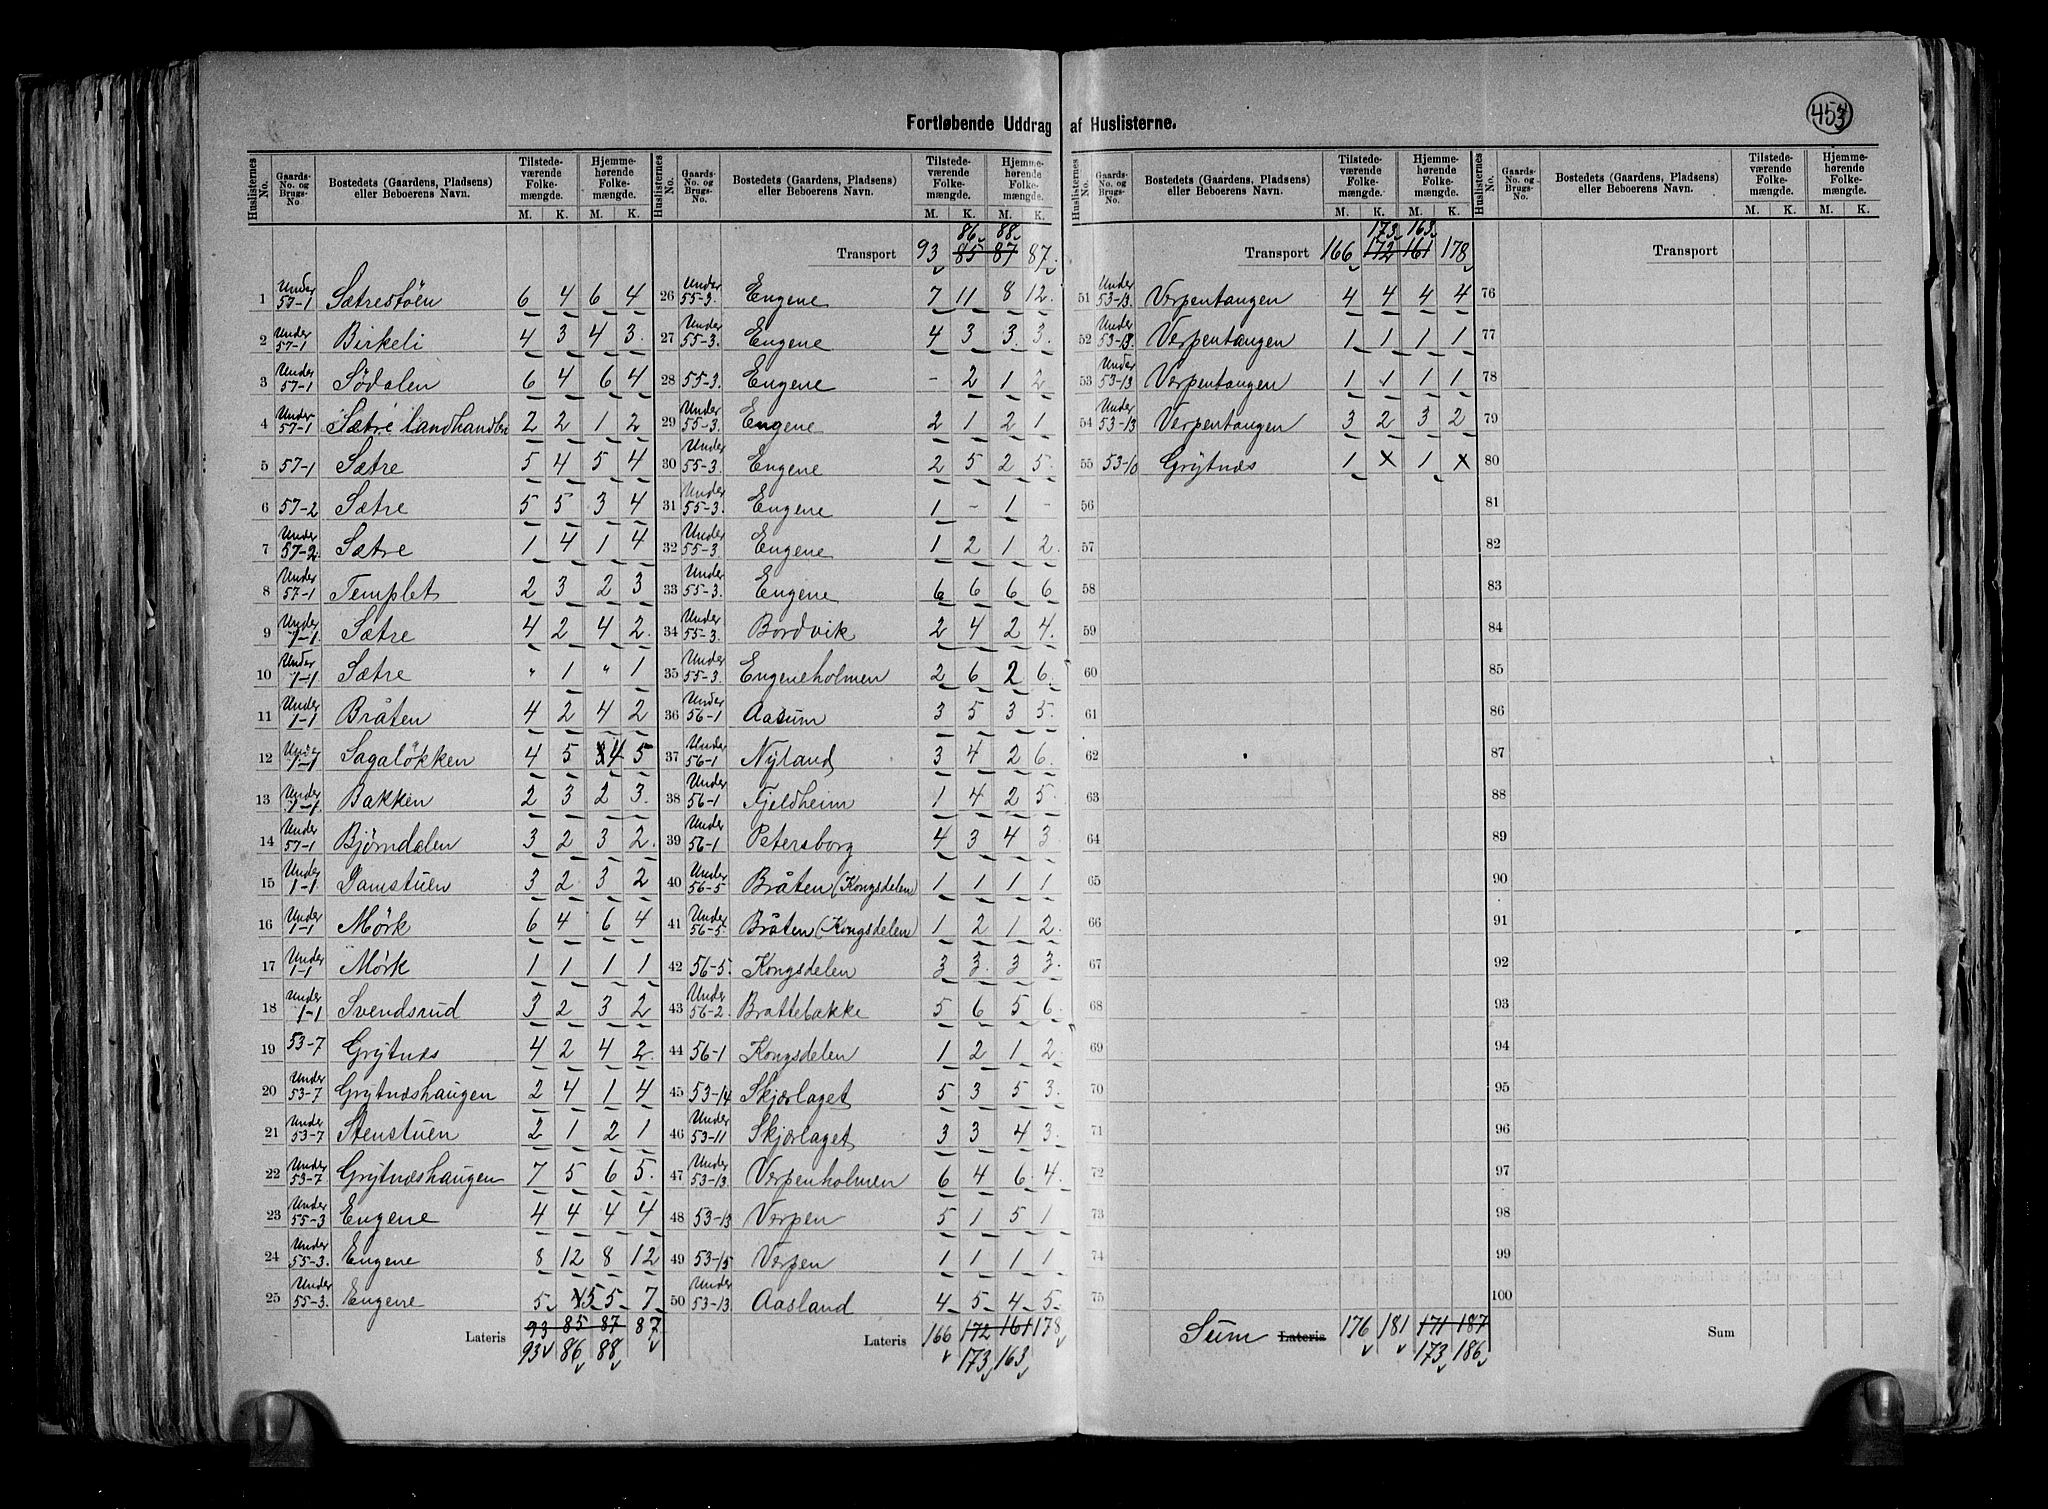 453
Fortløbende Uddrag af Huslisterne.
Huslisternes No. Gaards-No. og Brugs-No. Bostedets (Gaardens, Pladsens) eller Beboerens Navn. Tilstedeværende Folkemængde. M. K. Hjemmehørende Folkemængde. M. K.
1 Under 57-1 Sætrestøen 6 4 6 4
2 Under 57-1 Birkeli 4 3 4 3
3 Under 57-1 Sødalen 6 4 6 4
4 Under 57-1 Sætre landhandleri 2 2 1 2
5 57-1 Sætre 5 4 5 4
6 57-2 Sætre 5 5 3 4
7 Under 57-2 Sætre 1 4 1 4
8 Under 57-1 Templet 2 3 2 3
9 Under 1-1 Sætre 4 2 4 2
10 Under 1-1 Sætre " 1 " 1
11 Under 1-1 Bråten 4 2 4 2
12 Under 1-1 Sagaløkken 4 5 4 5
13 Under 1-1 Bakken 2 3 2 3
14 Under 57-1 Bjørndalen 3 2 3 2
15 Under 1-1 Damstuen 3 2 3 2
16 Under 1-1 Mørk 6 4 6 4
17 Under 1-1 Mørk 1 1 1 1
18 Under 1-1 Svendsrud 3 2 3 2
19 53-7 Grytnæs 4 2 4 2
20 Under 53-7 Grytnæshaugen 2 4 1 4
21 Under 53-7 Stenstuen 2 1 2 1
22 Under 53-7 Grytnæshaugen 7 5 6 5
23 Under 55-3 Engene 4 4 4 4
24 Under 55-3 Engene 8 12 8 12
25 Under 55-3 Engene 5 5 5 7
Lateris 93 85 87 87
93 86 88
Huslisternes No. Gaards-No. og Brugs-No. Bostedets (Gaardens, Pladsens) eller Beboerens Navn. Tilstedeværende Folkemængde. M. K. Hjemmehørende Folkemængde. M. K.
86 88
Transport 93 85 87 87
26 Under 55-3 Engene 7 11 8 12
27 Under 55-3 Engene 4 3 3 3
28 55-3 Engene - 2 1 2
29 Under 55-3 Engene 2 1 2 1
30 Under 55-3 Engene 2 5 2 5
31 Under 55-3 Engene 1 - 1 -
32 Under 55-3 Engene 1 2 1 2
33 Under 55-3 Engene 6 6 6 6
34 Under 55-3 Bordvik 2 4 2 4
35 Under 55-3 Engeneholmen 2 6 2 6
36 Under 56-1 Aasum 3 5 3 5
37 Under 56-1 Nyland 3 4 2 6
38 Under 56-1 Fjeldheim 1 4 2 5
39 Under 56-1 Petersborg 4 3 4 3
40 Under 56-5 Bråten (Kongsdelen) 1 1 1 1
41 Under 56-5 Bråten (Kongsdelen) 1 2 1 2
42 56-5 Kongsdelen 3 3 3 3
43 Under 56-2 Brattebakke 5 6 5 6
44 56-1 Kongsdelen 1 2 1 2
45 53-14 Skjærlaget 5 3 5 3
46 Under 53-11 Skjærlaget 3 3 4 3
47 Under 53-13 Verpenholmen 6 4 6 4
48 53-13 Verpen 5 1 5 1
49 53-15 Verpen 1 1 1 1
50 Under 53-13 Aasland 4 5 4 5
Lateris 166 172 161 178
173 163
Huslisternes No. Gaards-No. og Brugs-No. Bostedets (Gaardens, Pladsens) eller Beboerens Navn. Tilstedeværende Folkemængde. M. K. Hjemmehørende Folkemængde. M. K.
173 163
Transport 166 172 161 178
51 Under 53-13 Verpentangen 4 4 4 4
52 Under 53-13 Verpentangen 1 1 1 1
53 Under 53-13 Verpentangen 1 1 1 1
54 Under 53-13 Verpentangen 3 2 3 2
55 53-10 Grytnæs 1 x 1 x
56
57
58
59
60
61
62
63
64
65
66
67
68
69
70
71
72
73
74
75
Sum Lateris 176 181 171 187
173 186
Huslisternes No. Gaards-No. og Brugs-No. Bostedets (Gaardens, Pladsens) eller Beboerens Navn. Tilstedeværende Folkemængde. M. K. Hjemmehørende Folkemængde. M. K.
Transport
76
77
78
79
80
81
82
83
84
85
86
87
88
89
90
91
92
93
94
95
96
97
98
99
100
Sum